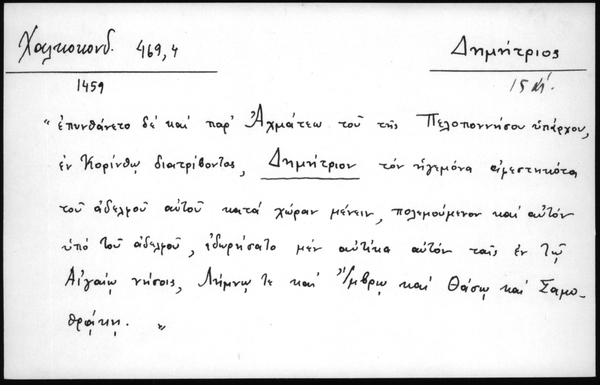 Χαλκοκονδ. 469,4
Δημήτριος
1459
15 αἰ.
" ἐπυνθάνετο δέ καί παρ' Ἀχμάτεω τοῦ τῆς Πελοποννήσου ὑπάρχου,
ἐν Κορίνθῳ διατρίβοντος, Δημήτριον τόν ἡγεμόνα ἀφεστηκότα
τοῦ ἀδελφοῦ αὐτοῦ κατά χώραν μένειν, πολεμούμενον καί αὐτόν
ὑπό τοῦ ἀδελφοῦ, ἐδωρήσατο μέν αὐτίκα αὐτόν ταῖς ἐν τῷ
Αἰγαίῳ νήσοις, Λήμνῳ τε καί Ἴμβρῳ καί Θάσῳ καί Σαμο-
θρᾴκῃ. "